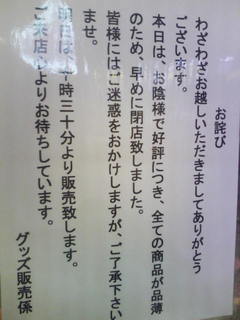 お詫び
わざわざお越しいただきましてありがとう
ございます。
本日は、お陰様で好評につき、全ての商品が品薄
のため、早めに閉店致しました。
皆様にはご迷惑をおかけしますが、ご了承下さい
ませ。
明日は、時三十分より販売致します。
ご来店心よりお待ちしています。
グッズ販売係